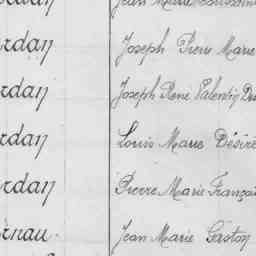 rdan Joseph Pierre Marie
rdan Joseph René Valentin
rdan Louis Marie Désiré
rdan Pierre Marie Françai
rnau Jean Marie Gaston